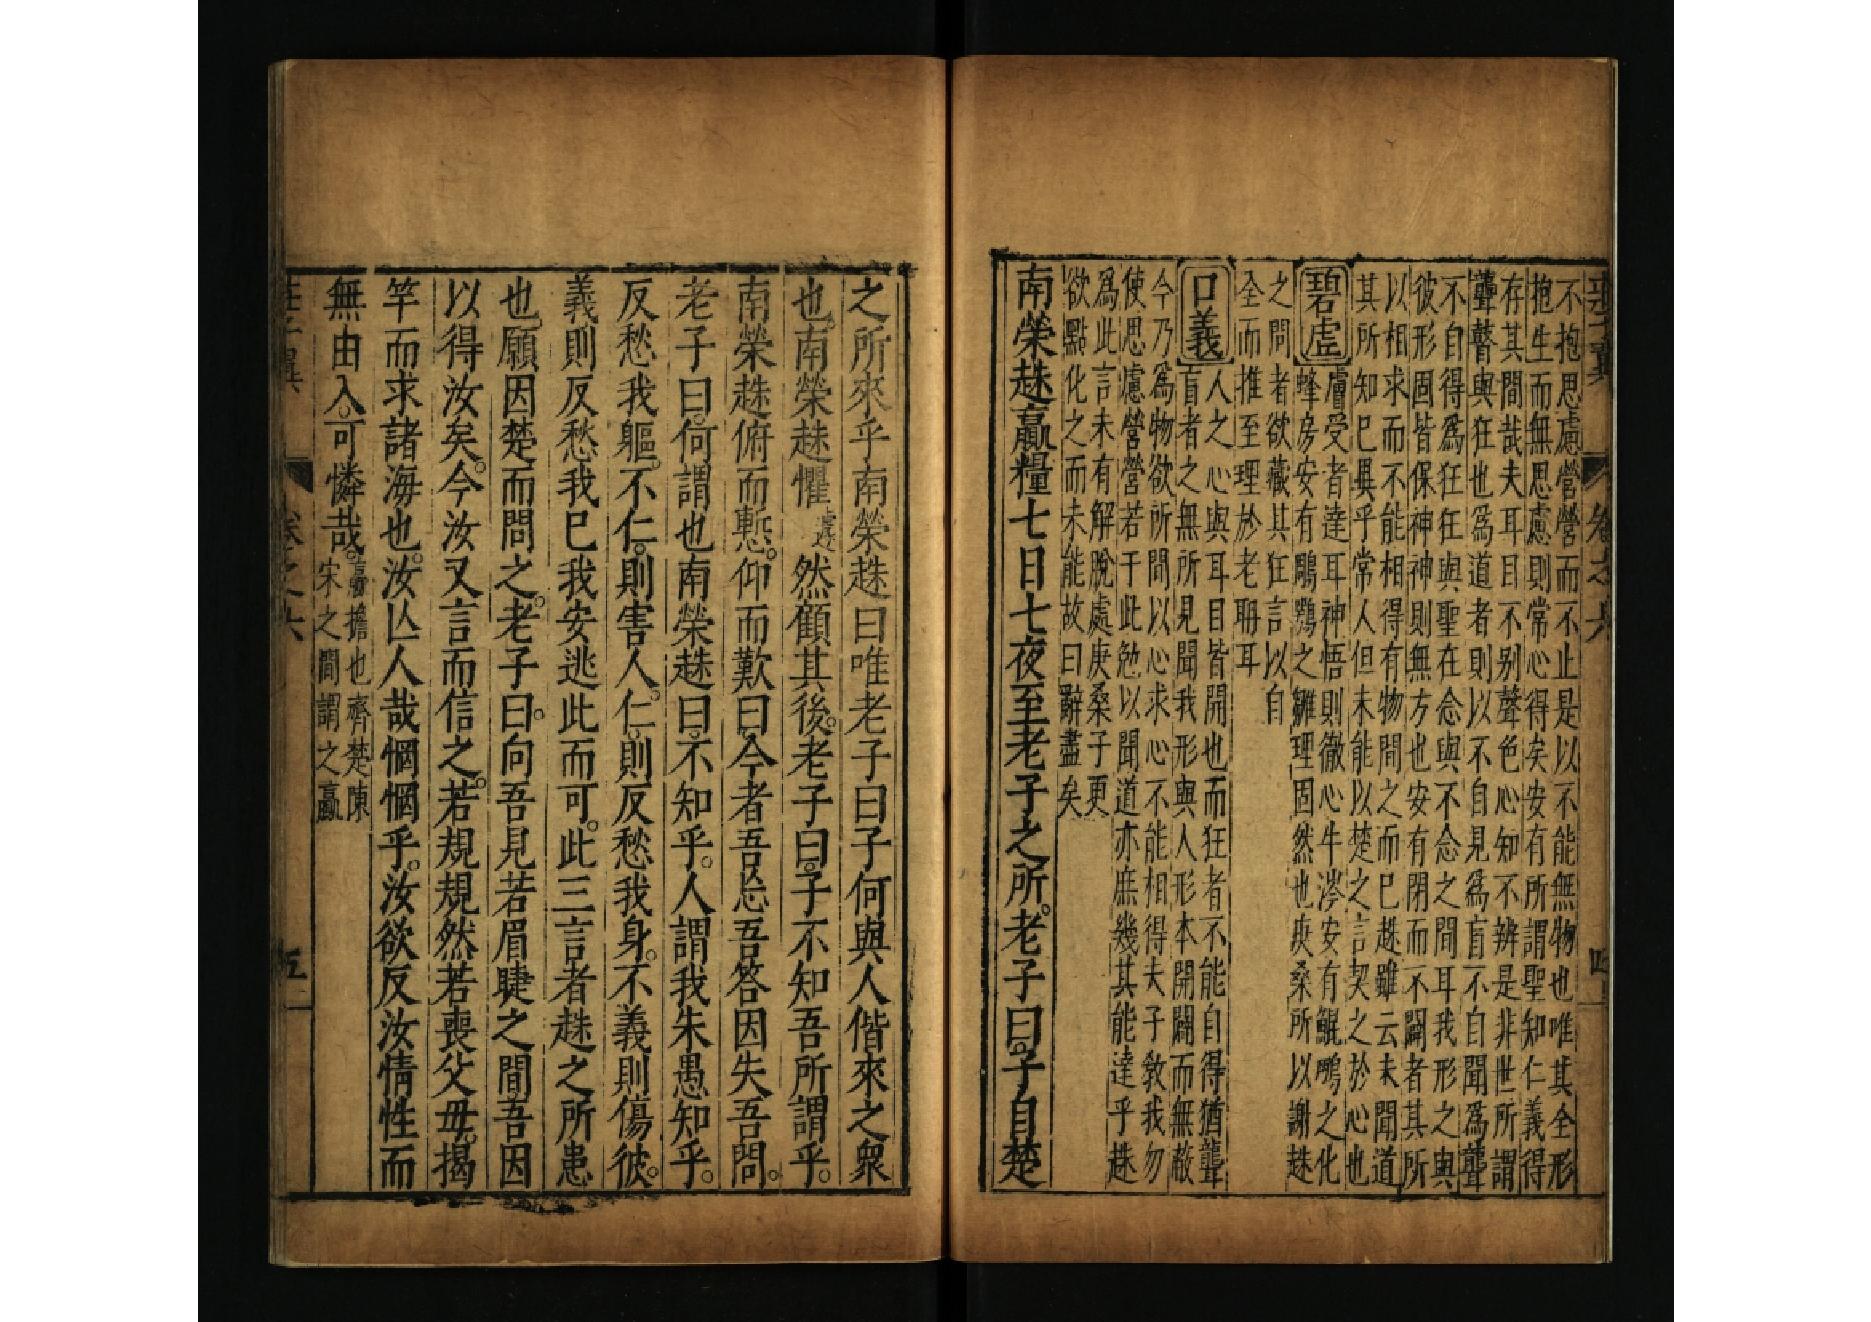 莊子翼 卷之六 四
不抱思慮營營而不止是以不能無物也唯其全形
抱生而無思慮則常心得矣安有所謂聖知仁義得
存其間哉夫耳目不別聲色心知不辨是非世所謂
聾瞽與狂也爲道者則以不自見爲盲不自聞爲聾
不自得爲狂狂與聖在念與不念之間耳我形之與
彼形固皆保神神則無方也安有閉而不闢者其所
以相求而不能相得有物間之而已趎雖云未聞道
其所知已異乎常人但未能以楚之言契之於心也
碧虛
膚受者達耳神悟則徹心牛涔安有鯤鵬之化
蜂房安有鵰鶚之雛理固然也庚桑所以謝趎
之問者欲藏其狂言以自
全而推至理於老聃耳
口義
人之心與耳目皆開也而狂者不能自得猶聾
盲者之無所見聞我形與人形本開闢而無蔽
今乃爲物欲所間以心求心不能相得夫子教我勿
使思慮營營若干此勉以聞道亦庶幾其能達乎趎
爲此言未有解脫處庚桑子更
欲點化之而未能故曰辭盡矣
南榮趎贏糧七日七夜至老子之所。老子曰。子自楚
之所來乎南榮趎曰唯老子曰子何與人偕來之衆
也。南榮趎懼然顧其後。老子曰。子不知吾所謂乎。
南榮趎俯而慙。仰而歎曰。今者吾忘吾答因失吾問。
老子曰。何謂也南榮趎曰。不知乎。人謂我朱愚知乎。
反愁我軀。不仁。則害人。仁。則反愁我身。不義則傷彼。
義則反愁我已我安逃此而可。此三言者趎之所患
也。願因楚而問之。老子曰。向吾見若眉睫之間。吾因
以得汝矣。今汝又言而信之。若規規然若喪父母。揭
竿而求諸海也。汝亾人哉惘惘乎。汝欲反汝情性而
無由入。可憐哉。
贏擔也齊楚陳
宋之間謂之贏
莊子翼 卷之六 五